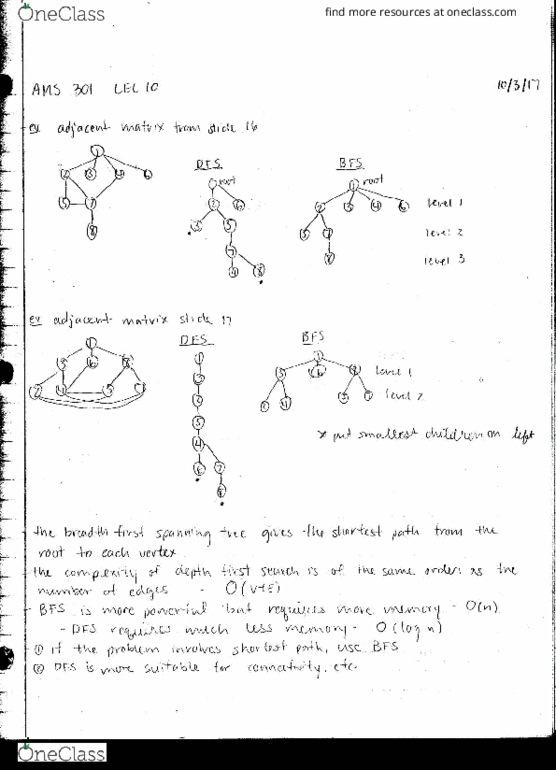 OneClass
find more resources at oneclass.com
AMS 301 LEC 10
10/3/17
ex adjacent matrix from slide 16
DFS
BFS
root
root
level 1
level 2
level 3
ex adjacent matrix slide 17
DFS
BFS
level 1
level 2
* put smallest children on left
the breadth first spanning tree gives the shortest path from the
root to each vertex
the complexity of depth first search is of the same order as the
number of edges - O(V+E)
- BFS is more powerful but requires more memory - O(n)
- DFS requires much less memory - O(log n)
① if the problem involves shortest path, use BFS
② DFS is more suitable for connectivity, etc.
OneClass